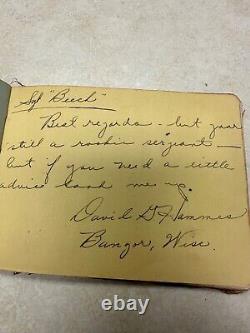 Sgt "Beech"
Best regards - but your
still a rookie sergeant —
but if you need a little
advice look me up.
David G. Hammes
Bangor, Wisc.